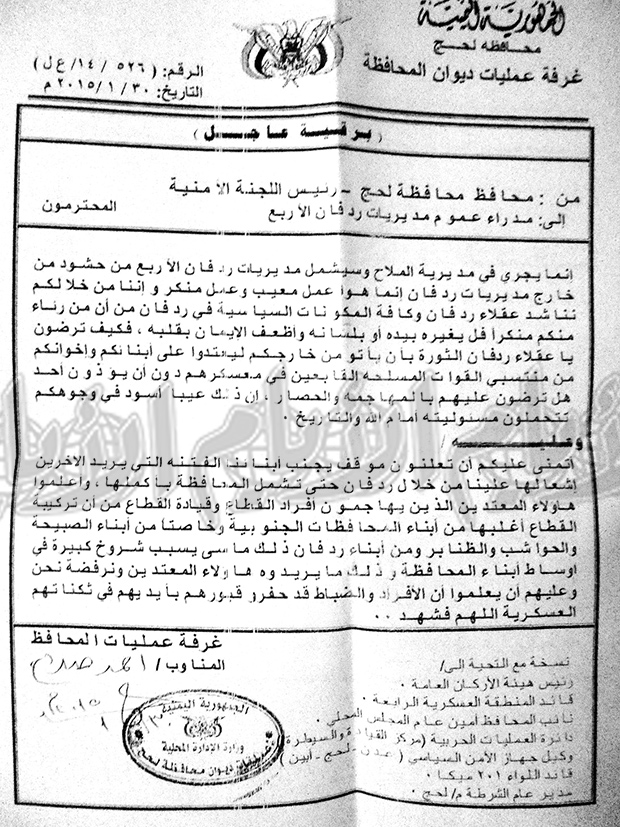 الجمهورية اليمنية
محافظه لحج
غرفة عمليات ديوان المحافظة
الرقم: ( ٥٢٦ / ١٤ / ع ل )
التاريخ: ٣٠ / ١ / ٢٠١٥م
( برقية عاجل )
من : محافظ محافظة لحج - رئيس اللجنة الأمنية
إلى: مدراء عموم مديريات ردفان الأربع المحترمون
إنما يجري في مديرية الملاح وسيشمل مديريات ردفان الأربع من حشود من
خارج مديريات ردفان إنما هوأ عمل معيب وعمل منكر و إننا من خلالكم
نناشد عقلاء ردفان وكافة المكونات السياسية في ردفان من أن من رئاء
منكم منكراً فل يغيره بيده أو بلسانه وأظعف الإيمان بقلبه ، فكيف ترضون
يا عقلاء ردفان الثورة بأن يأتو من خارجكم ليعتدوا على أبنائكم وإخوانكم
من منتسبي القوات المسلحه القابعين في معسكرهم دون أن يوذون أحد
هل ترضون عليهم بالمهاجمه والحصار ، إن ذلك عيباً أسود في وجوهكم
تتحملون مسئوليته أمام الله والتاريخ .
وعليه /
أتمنى عليكم أن تعلنون موقف يجنب أبنائنا الفتنه التي يريد الاخرين
إشعالها علينا من خلال ردفان حتى تشمل المحافظة بأكملها ، وأعلموا
هاولاء المعتدين الذين يهاجمون أفراد القطاع وقيادة القطاع من أن تركيبة
القطاع أغلبها من أبناء المحافظات الجنوبية وخاصتاً من أبناء الصبيحة
والحواشب والظنابر ومن أبناء ردفان ذلك ماسى يسبب شروخ كبيرة في
اوساط أبناء المحافظة وذلك ما يريدوه هاولاء المعتدين ونرفضة نحن
وعليهم أن يعلموا أن الأفراد والضباط قد حفرو قبورهم بأيديهم في ثكناتهم
العسكرية اللهم فشهد ..
غرفة عمليات المحافظ
المناوب /
الجمهورية اليمنية
وزارة الإدارة المحلية
ديوان محافظة لحج
نسخة مع التحية إلى /
رئيس هيئة الأركان العامة .
قائد المنطقة العسكرية الرابعة .
نائب المحافظ أمين عام المجلس المحلي .
دائرة العمليات الحربية (مركز القيادة والسيطرة)
وكيل جهاز الأمن السياسي ( عدن - لحج - أبين )
قائد اللواء ٢٠١ ميكا .
مدير عام الشرطة م/ لحج .